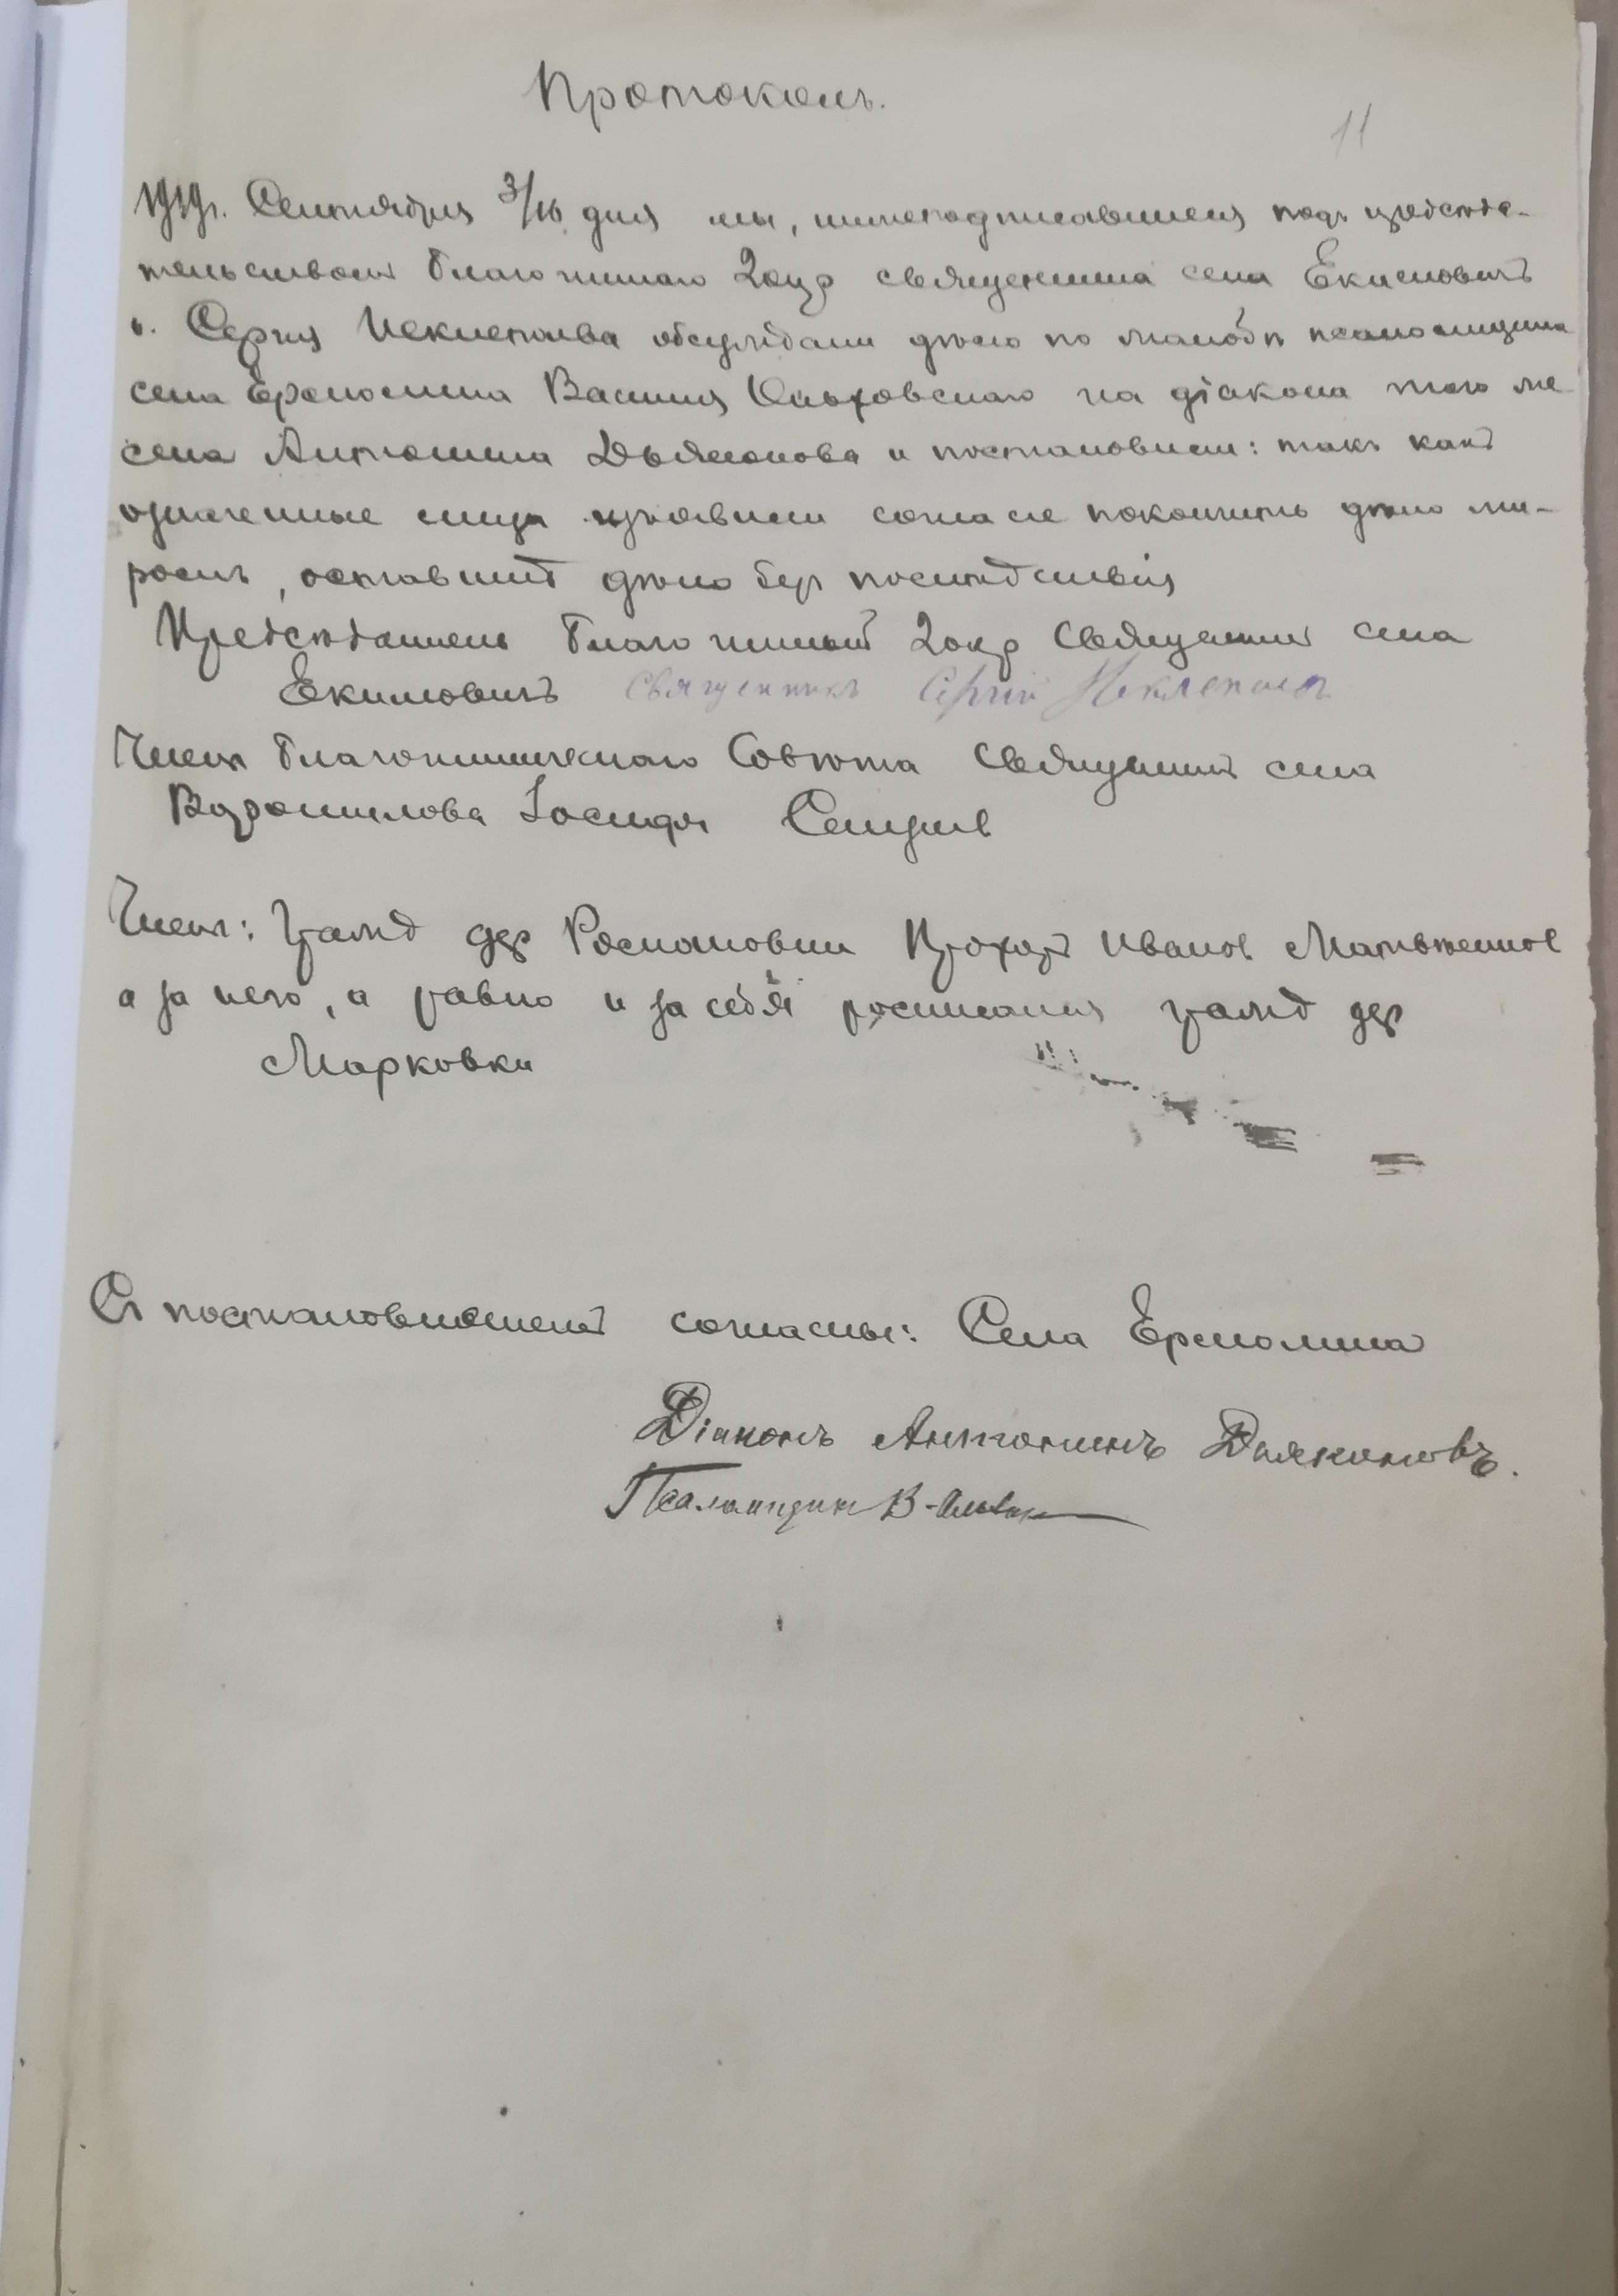 Протоколъ.
11
1919г. Сентября 3/16 дня мы, нижеподписавшиеся подъ предсѣда-
тельствомъ благочиннаго 2 окр священника села Екимовичъ
о. Сергія обсуждали дѣло по жалобѣ псаломщика
села Ермолина Василія Ольховскаго на діакона того же
села Антонина Дьяконова и постановили: такъ какъ
означенные лица изъявили согласіе покончить дѣло ми-
ромъ, оставить дѣло без послѣдствій
Предсѣдатель благочинный 2 окр Священник села
Екимовичъ Священникъ Сергій
Членъ благочинническаго Совѣта Священникъ села
Ворошилова Іосифъ
Членъ: гражд дер Прохоръ Иванов
а за него, а равно и за себя росписался гражд дер
Марковки
Съ постановлениемъ согласны: Села Ермолина
Діаконъ Антонинъ Дьяконовъ.
Псаломщик В.